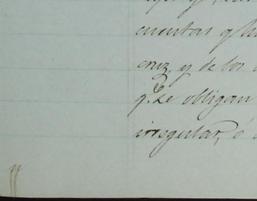 cuentas q
cruz, y de los
q. se obligan
irregular, ó